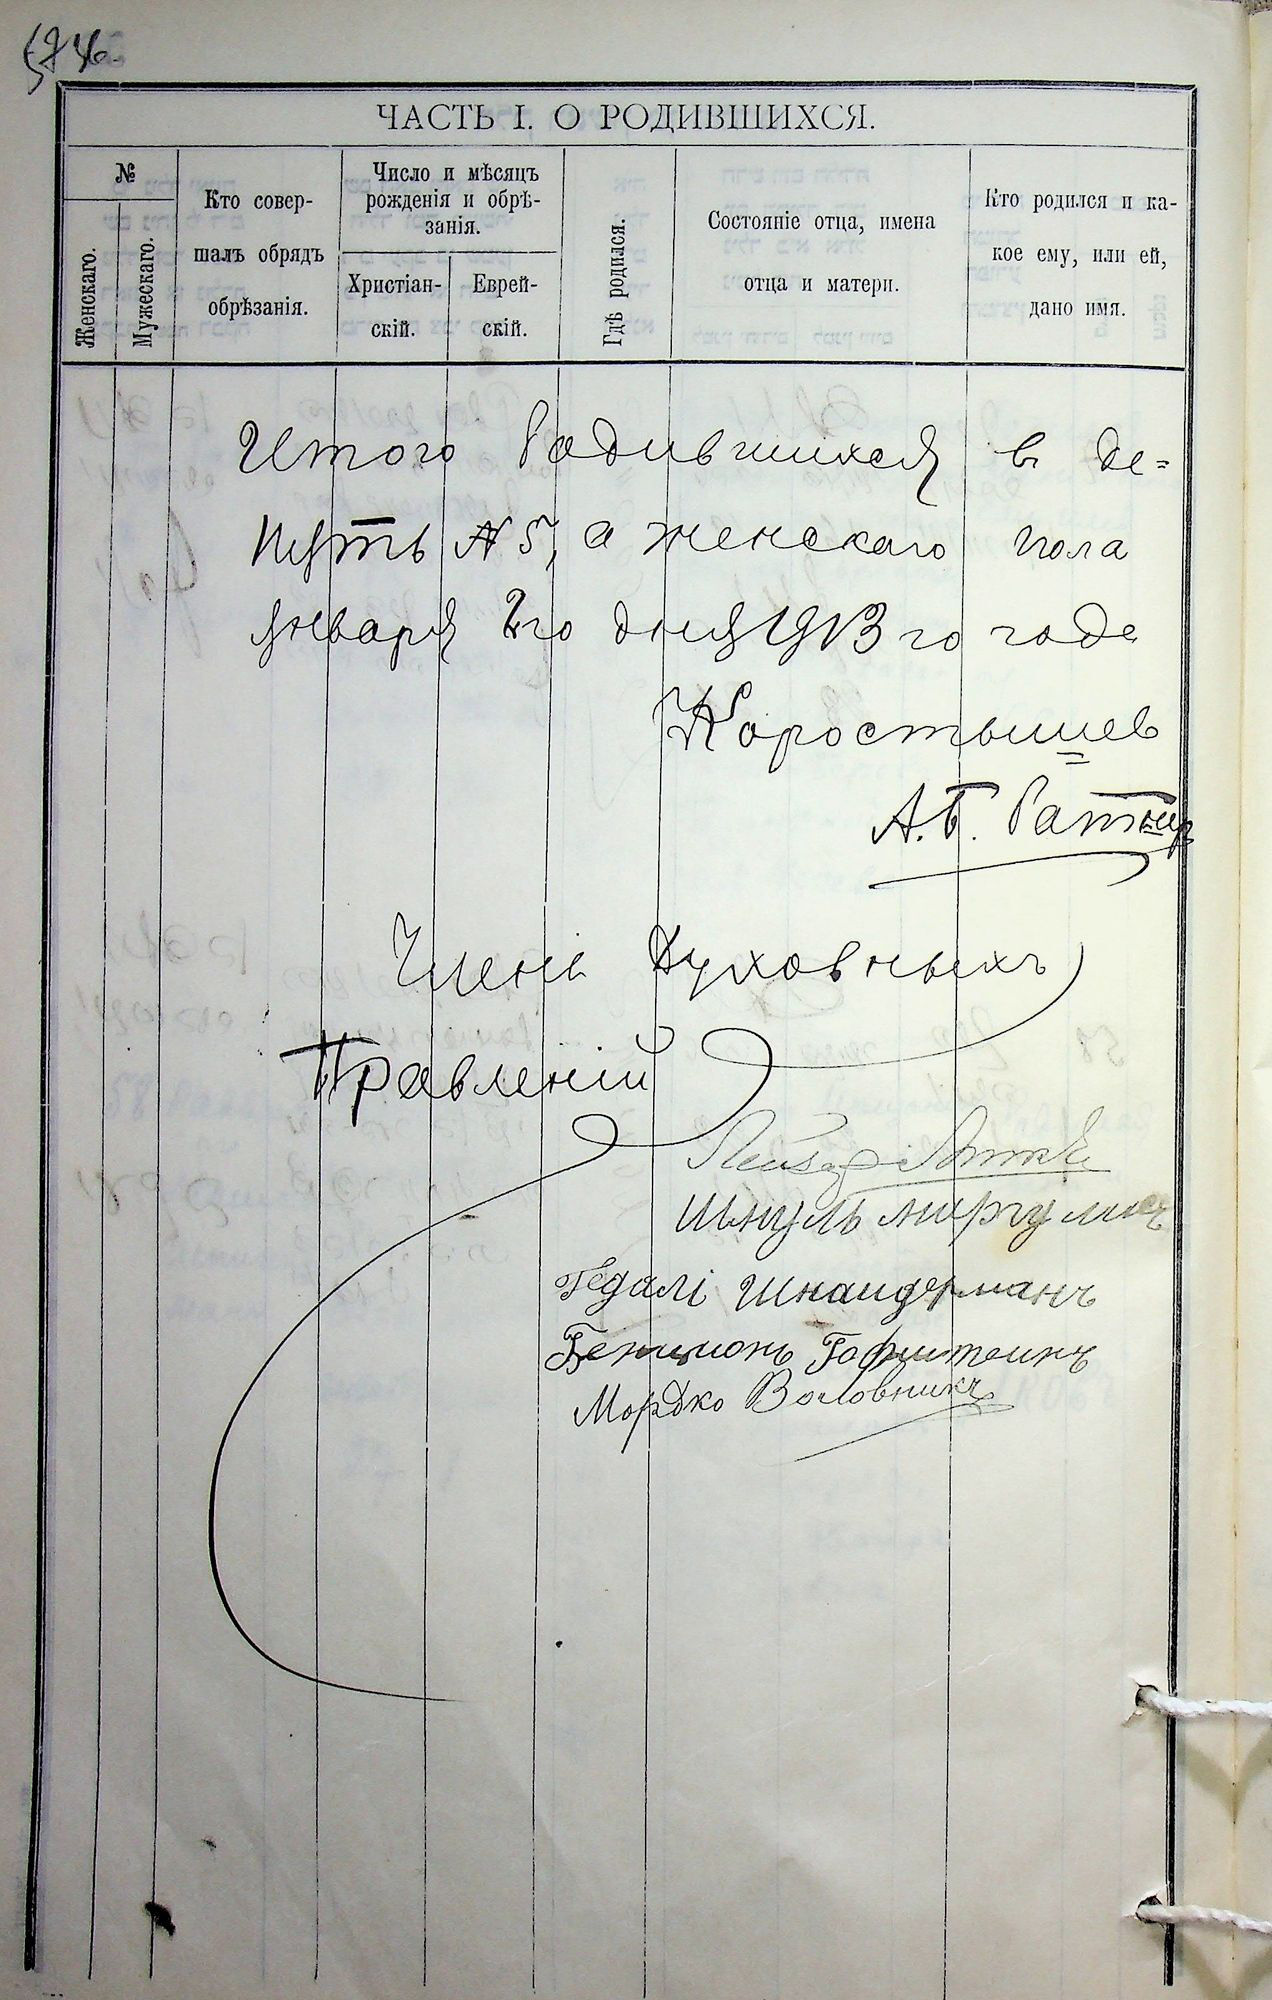 ЧАСТЬ I. О РОДИВШИХСЯ.
№
Женскаго.
Мужескаго.
Кто совер-
шалъ обрядъ
обрѣзанія.
Число и мѣсяцъ
рожденія и обрѣ-
занія.
Христіан-
скій.
Еврей-
скій.
Гдѣ родился.
Состояніе отца, имена
отца и матери.
Кто родился и ка-
кое ему, или ей,
дано имя.
Итого Родившихся в де=
путъ № 5, а женскаго пола
января 2го дня 1913го года
Коростышев
А.Б. Ратнер
Члени Духовныхъ
Правленій
Шмуль Миргулисъ
Гедалі Шнаидерманъ
Бенционъ Гофштеинъ
Мордко Воловникъ